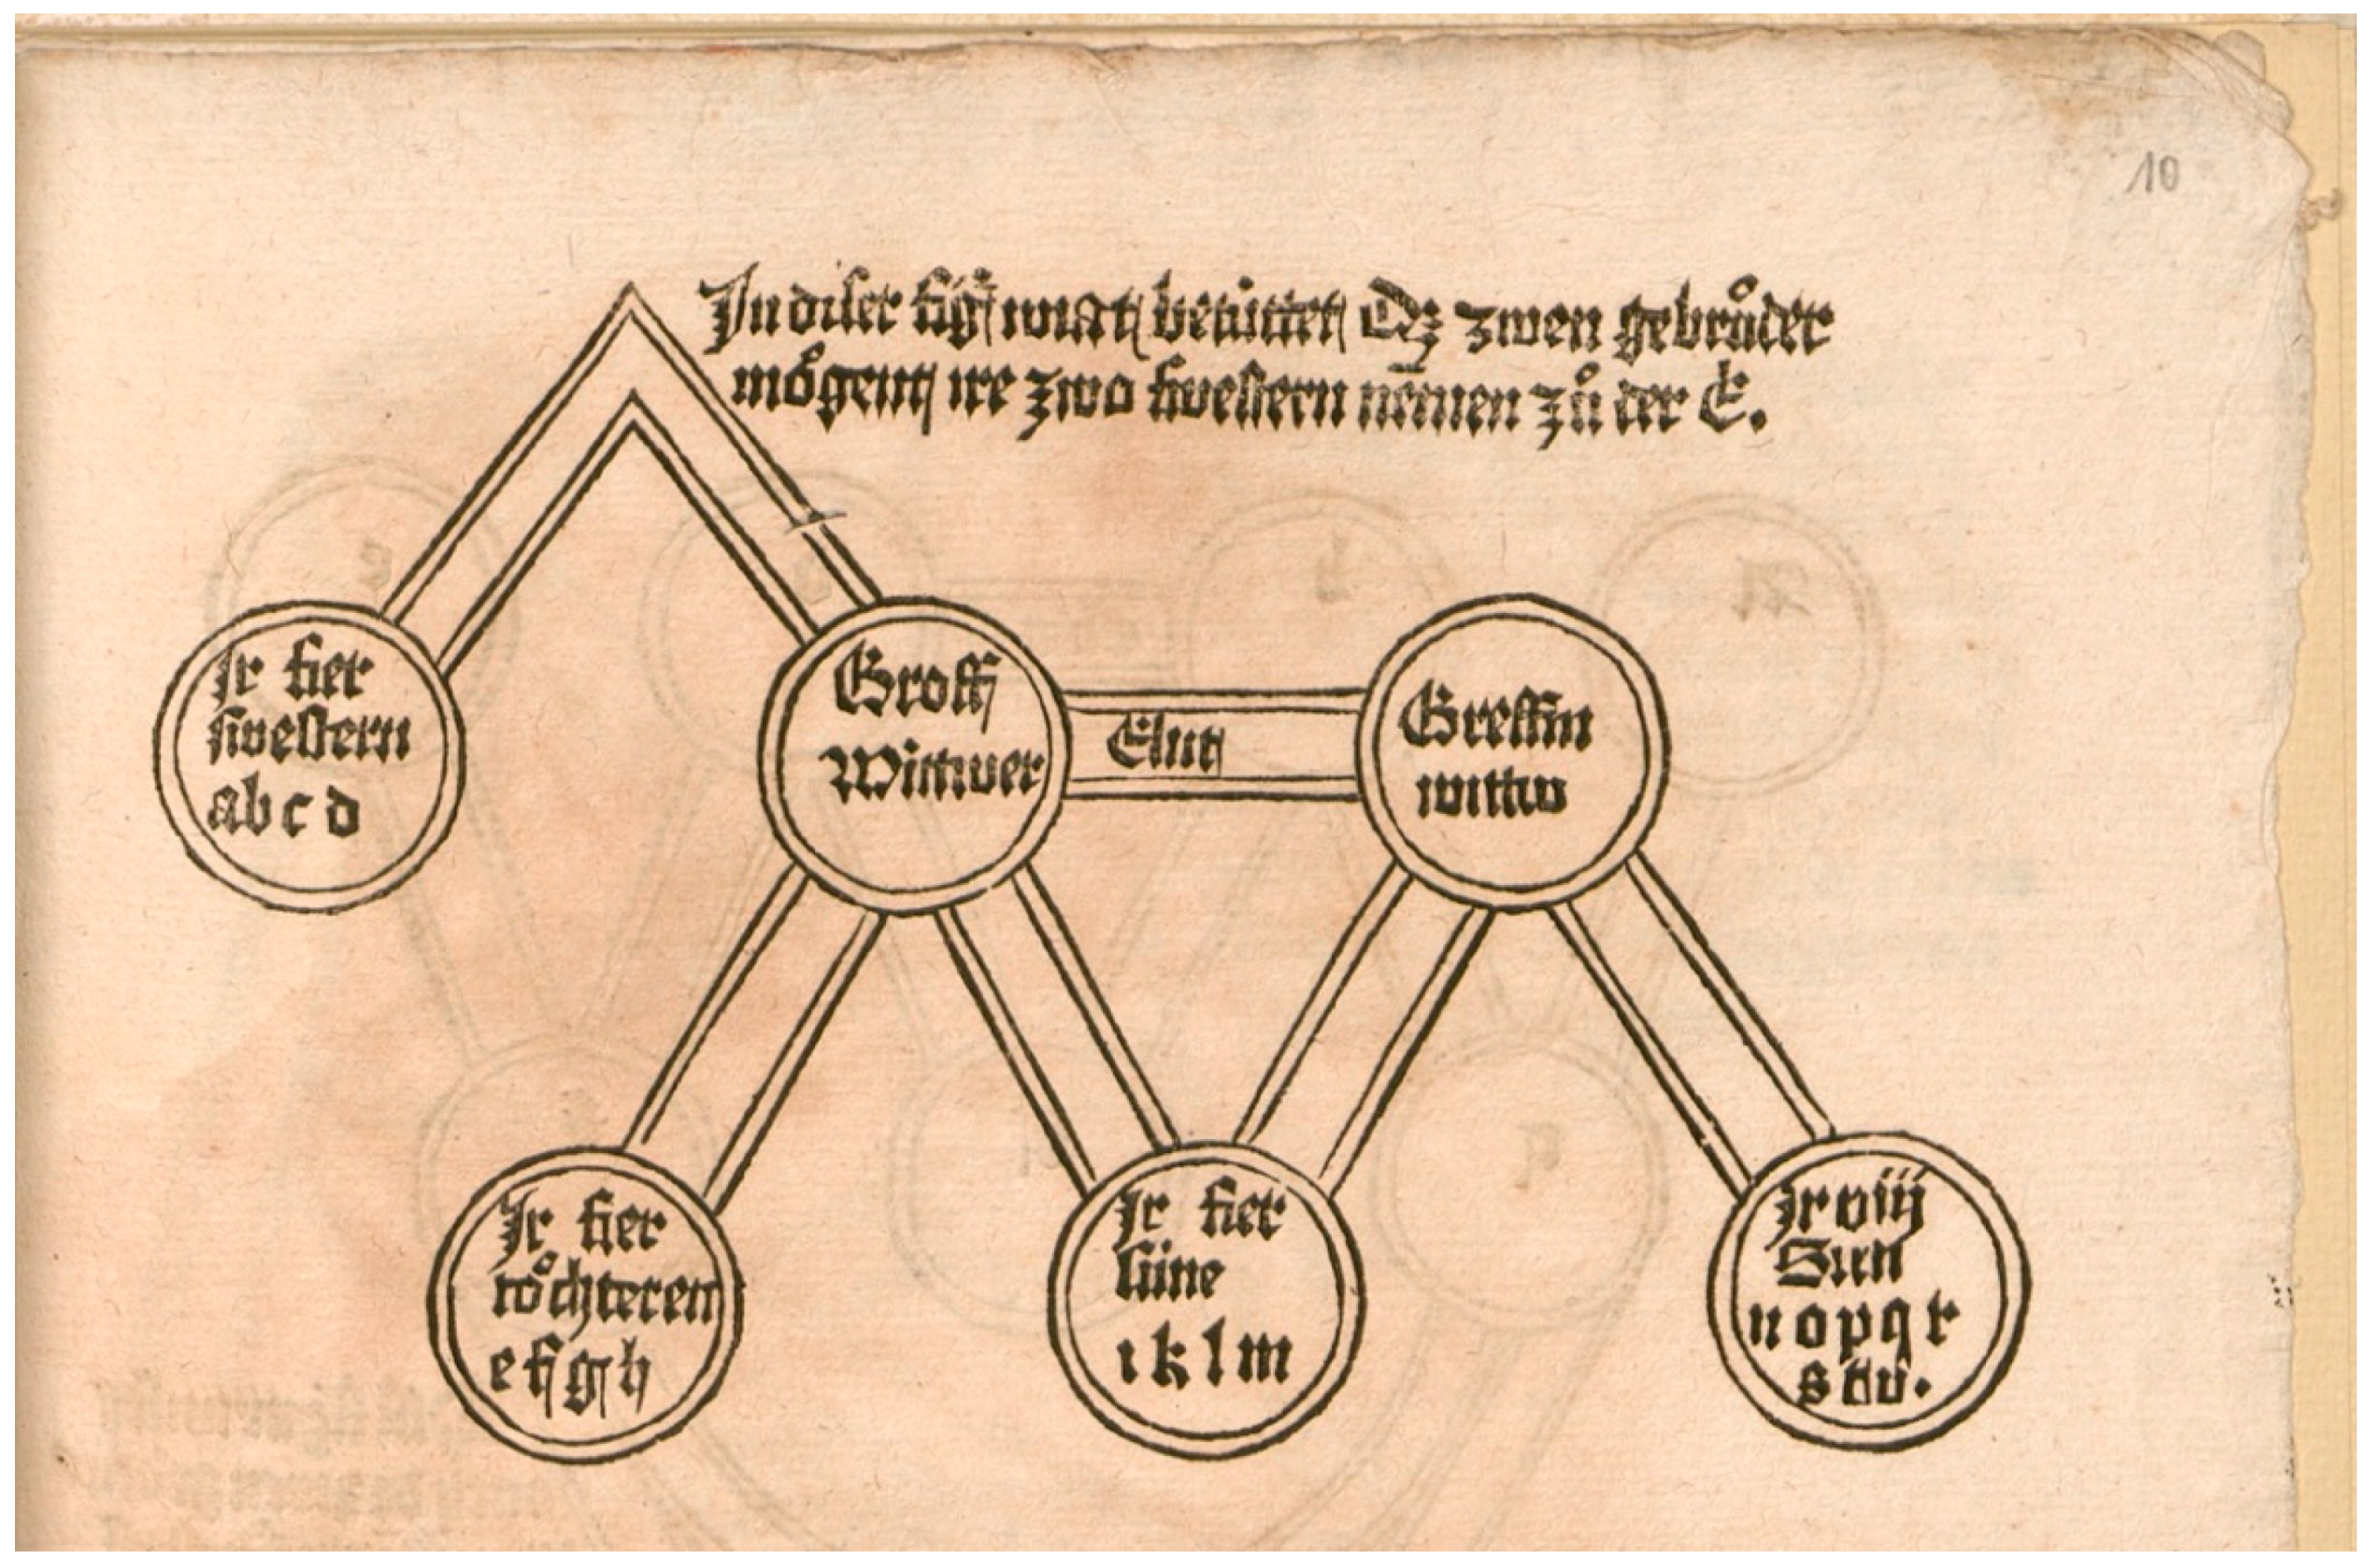 10
In diser fig' wirt betüttet Dz zwen gebrůder
mőgent ire zwo swestern nēmen zů der E.
Ir fier
swestern
a b c d
Groff
Wittwer
Elüt
Greffin
wittw
Ir fier
tőchteren
e f g h
Ir fier
süne
i k l m
Ir viij
Sün
n o p q r
s t v.